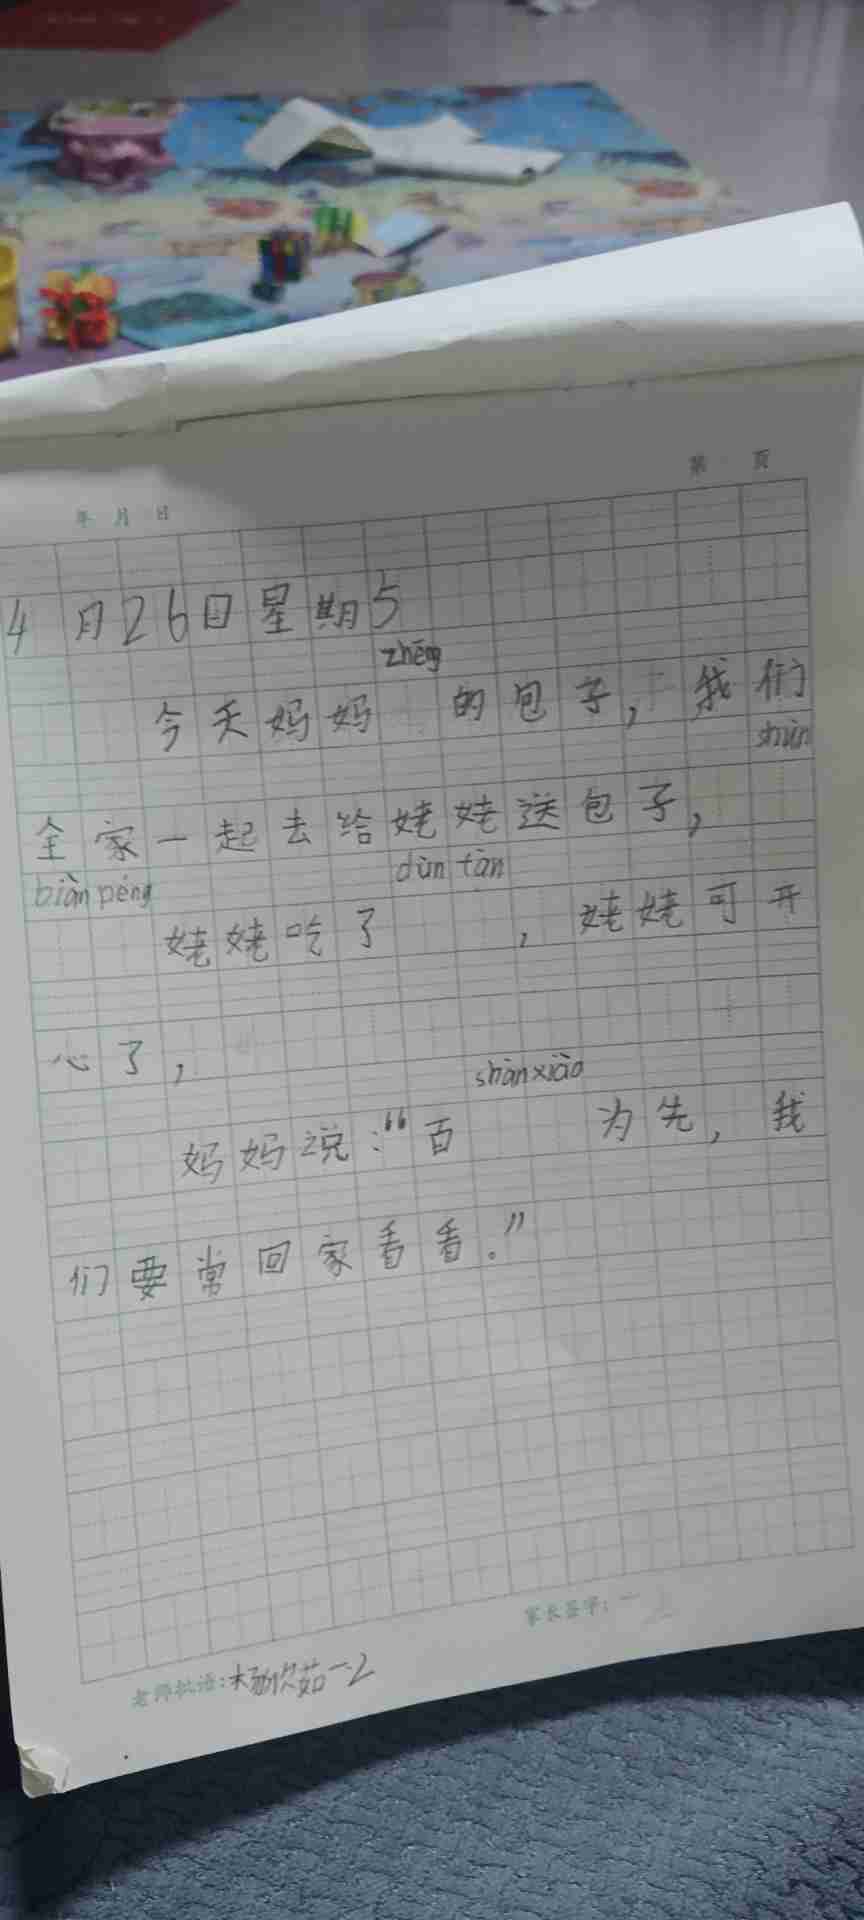 第 页
年 月 日
4月26日星期5
zhēng
今天妈妈 的包子,我们
shùn
全家一起去给姥姥送包子,
biàn péng dùn tàn
姥姥吃了 ,姥姥可开
心了,
shàn xiào
妈妈说:“百 为先,我
们要常回家看看。”
家长签字:
老师批语:杨欣茹一.2